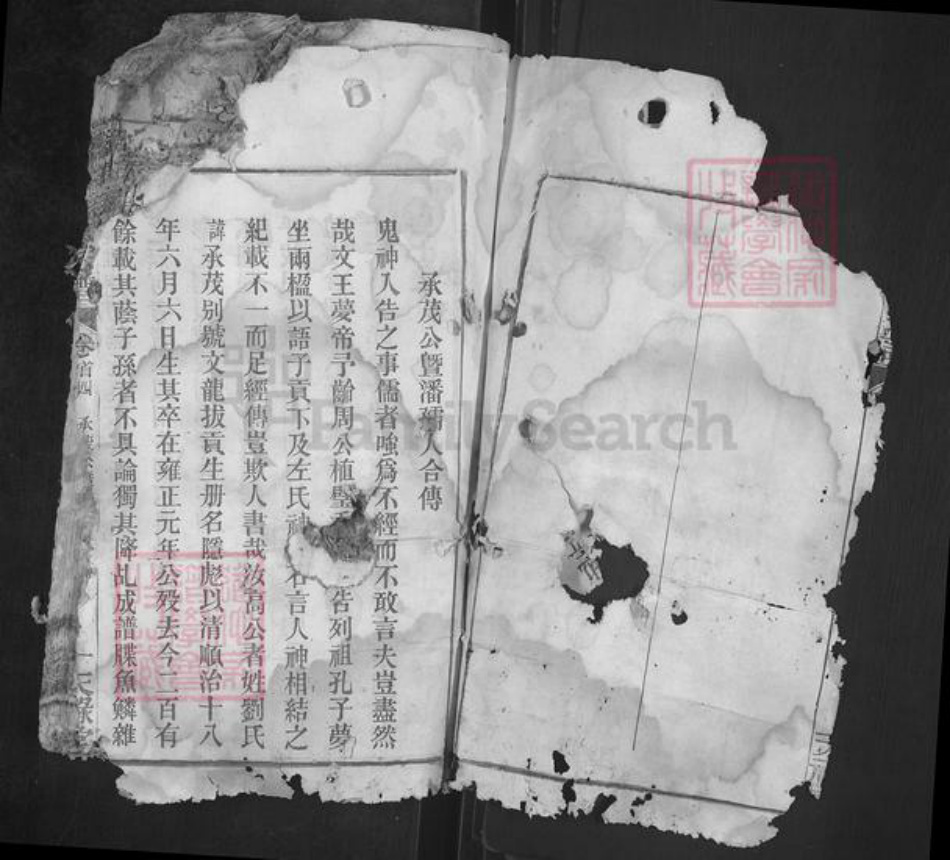 承茂公曁潘孺人合傳
鬼神人告之事儒者嗤爲不經而不敢言夫豈盡然
哉文王夢帝予齡周公植璧 告列祖孔子夢
坐兩楹以語子貢下及左氏神 石言人神相結之
紀載不一而足經傳豈欺人書哉汝高公者姓劉氏
諱承茂别號文龍拔貢生册名隱彪以清順治十八
年六月六日生其卒在雍正元年公殁去今二百有
餘載其蔭子孫者不具論獨其降乩成譜牒魚鱗雜
卷首四
一
FamilySearch